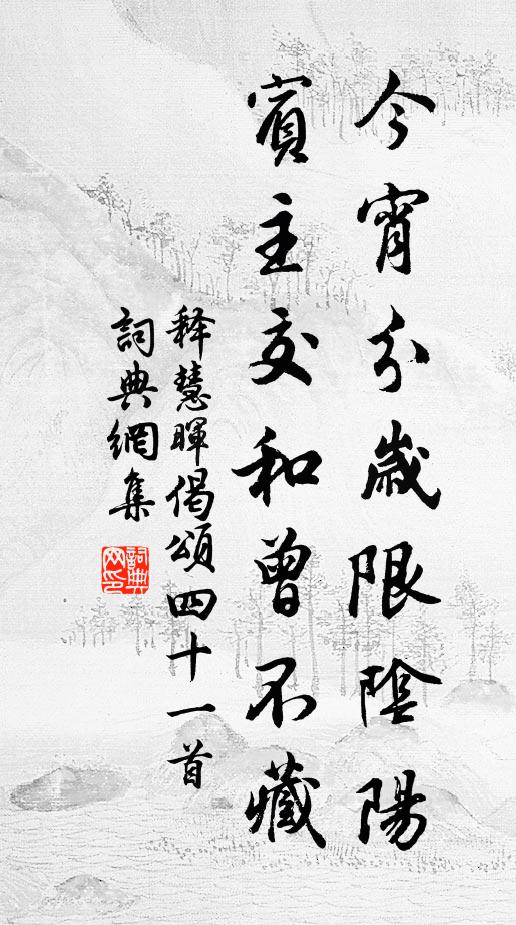 今宵分歲限陰陽
賓主交和曾不藏
释慧暉偈頌四十一首
詞典網集
詞典网印